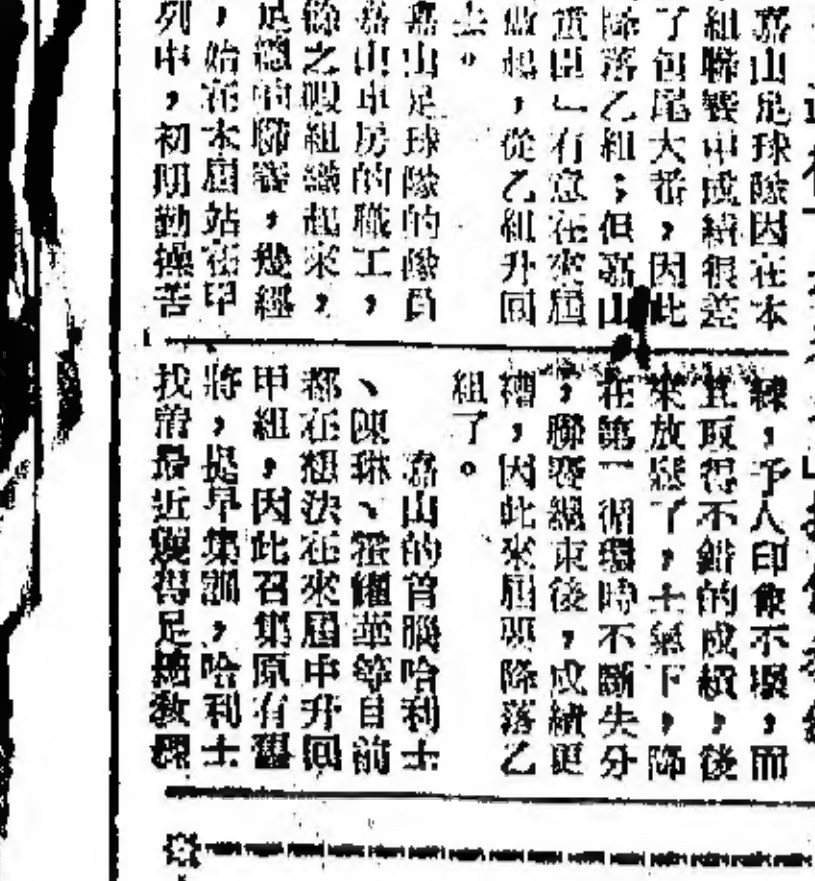 嘉山足球隊因在本
組聯賽中成績很差
了包尾大番,因此
降落乙組;但嘉山
重臣」有意在來屆
做起,從乙組升回
去。
嘉山足球隊的隊員
嘉山車房的職工,
餘之暇組織起來,
足總的聯賽,幾經
,始在本屆站在甲
列中,初期勤操苦
練,予人印象不壞,而
且取得不錯的成績,後
來放鬆了,士氣下,降
在第一循環時不斷失分
,聯賽結束後,成績更
糟,因此來屆要降落乙
組了。
嘉山的首腦哈利士
、陳琳、耀華等目前
都在想決在來屆中升回
甲組,因此召集原有舊
將,提早集訓,哈利士
找着最近獲得足總教練